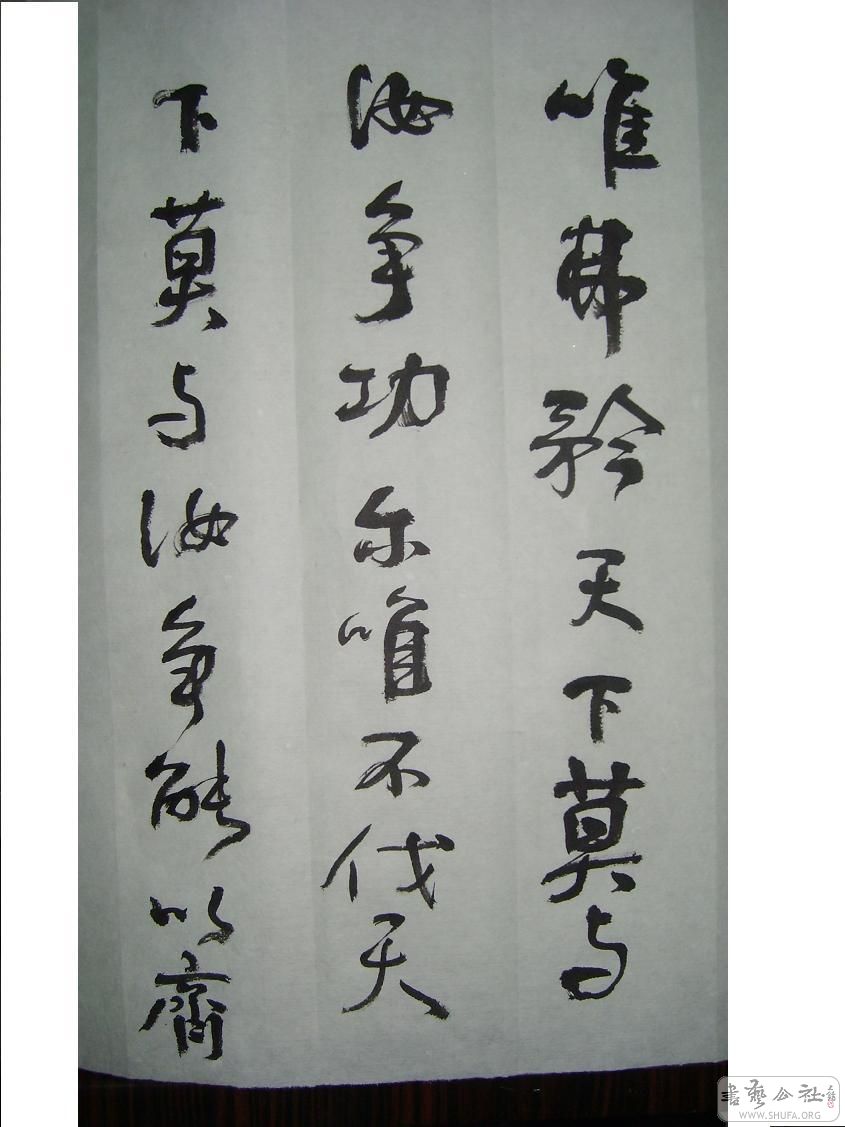 唯弗矜天下莫与
汝争功尔唯不伐天
下莫与汝争能以齊
書艺公社
WWW.SHUFA.ORG